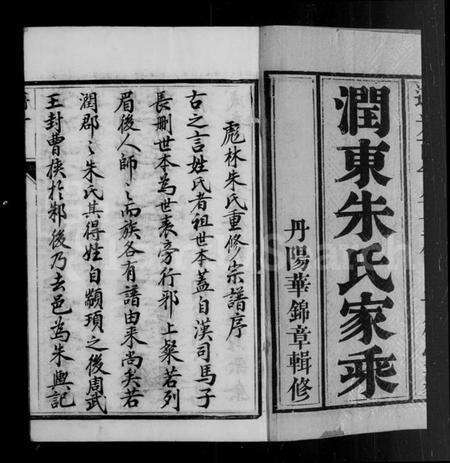 潤東朱氏家乘
丹陽華錦章輯修
彪林朱氏重修宗譜序
古之言姓氏者祖世本蓋自漢司馬子
長刪世本為世表旁行邪上粲若列
眉後人師之而族各有譜由来尚矣若
潤郡之朱氏其得姓自顓頊之後周武
王封曹俠於邾後乃去邑為朱與記